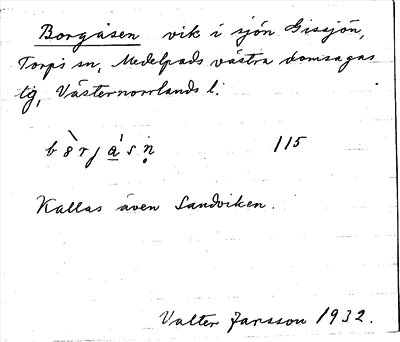 Borgåsen vik i sjön Gissjön,
Torps sn, Medelpads västra domsagas
tg, Västernorrlands l.
115
Kallas även Sandviken.
Valter Jansson 1932.